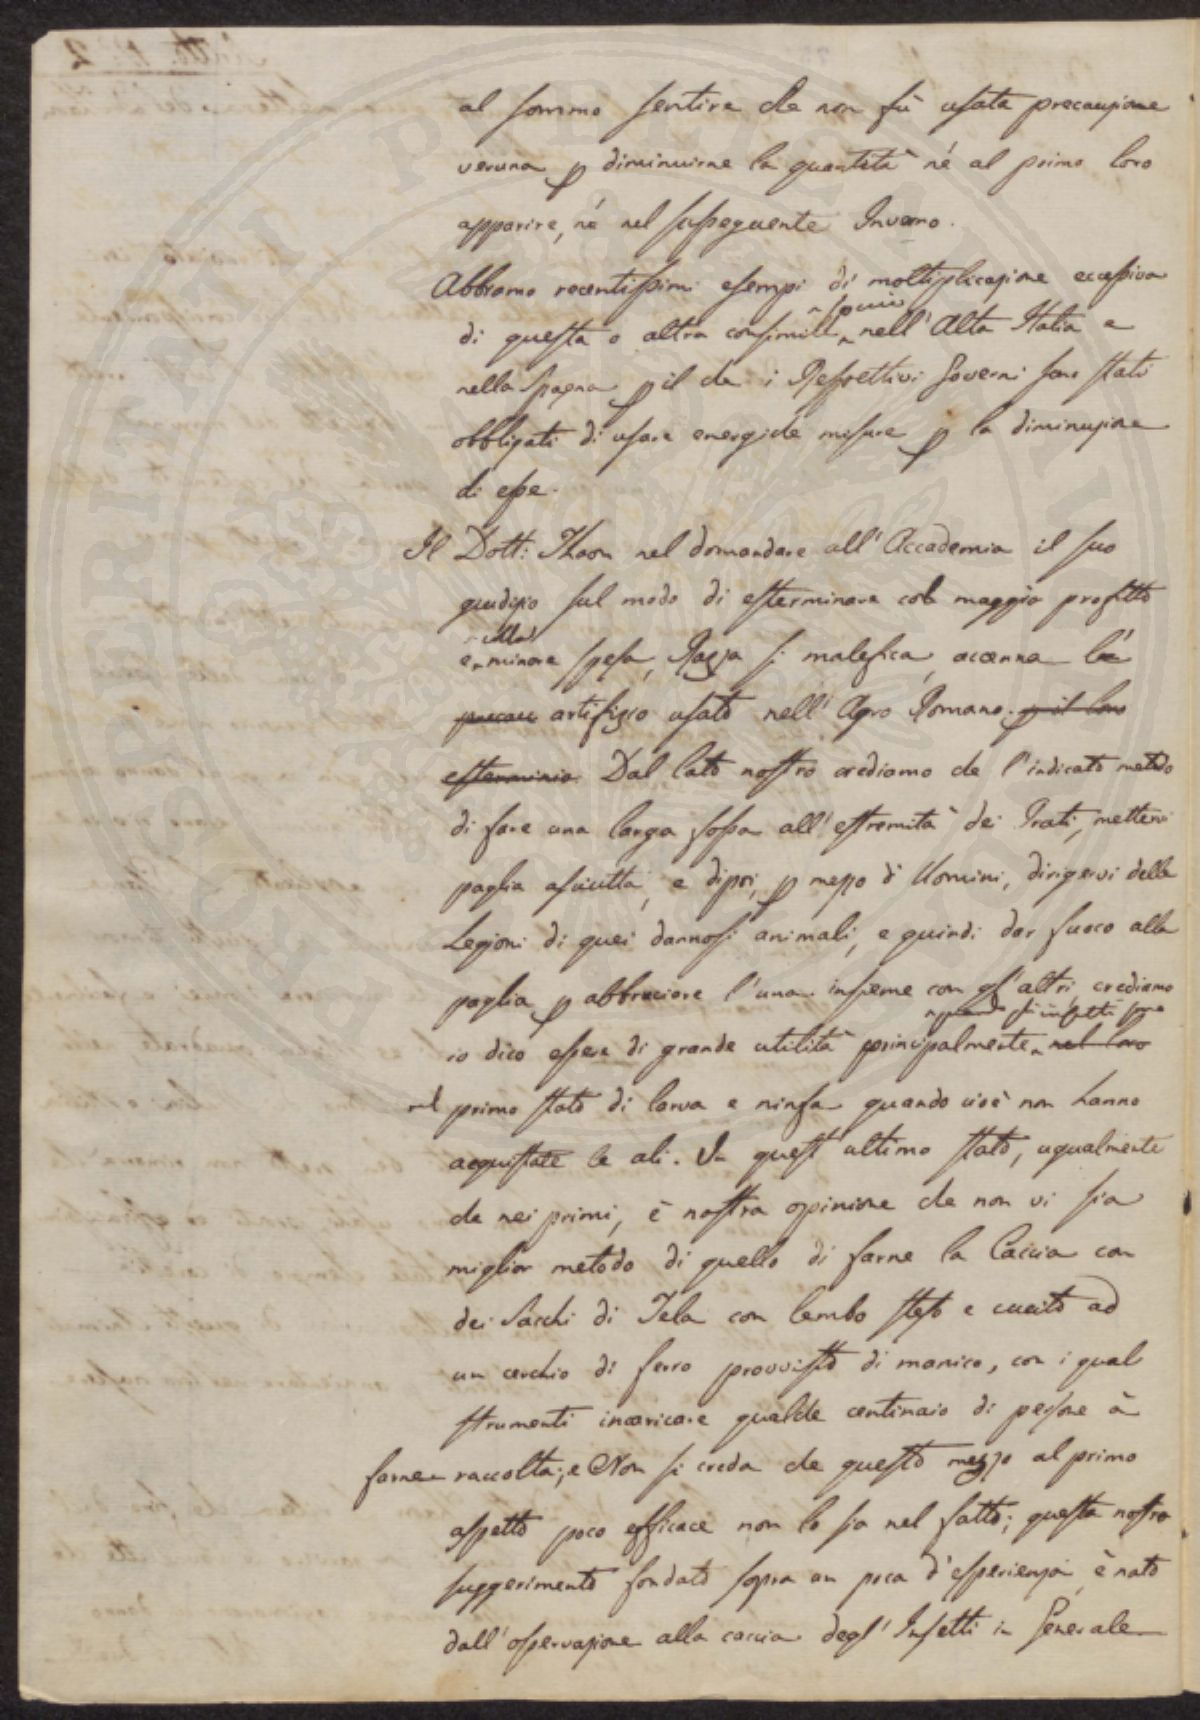 al sommo sentire che non fù usata precauzione
veruna p diminuirne la quantità né al primo loro
apparire, né nel susseguente Inverno.
Abbiamo recentissimi esempi di moltiplicazione eccessiva
di questa o altra consimile specie nell'Alta Italia e
nella Spagna p il che i Respettivi Governi sono stati
obbligati di usare energiche misure p la diminuzione
di esse.
Il Dott: Thaon nel domandare all'Accademia il suo
giudizio sul modo di esterminare col maggio profitto
e minore spesa, Razza sì malefica, accenna
artifizio usato nell'Agro Romano. p il loro
esterminio. Dal lato nostro crediamo che l'indicato metodo
di fare una larga fossa all'estremità dei Prati, mettervi
paglia asciutta, e dipoi, p mezzo di Uomini, dirigervi delle
Legioni di quei dannosi animali, e quindi dar fuoco alla
paglia p abbruciare l'una insieme con gl'altri, crediamo
quando gl'insetti sono
io dico essere di grande utilità principalmente nel loro
nel primo stato di larva e ninfa quando cioè non hanno
acquistate le ali. In quest'ultimo stato, ugualmente
che nei primi, è nostra opinione che non vi sia
miglior metodo di quello di farne la Caccia con
dei Sacchi di Tela con lembo steso e cucito ad
un cerchio di ferro provvisto di manico, con i quali
strumenti incaricare qualche centinaio di persone à
farne raccolta; e Non si creda che questo mezzo al primo
aspetto poco efficace non lo sia nel fatto; questo nostro
suggerimento fondato sopra un poca d'esperienza, è nato
dall'osservazione alla caccia degl'Insetti in Generale